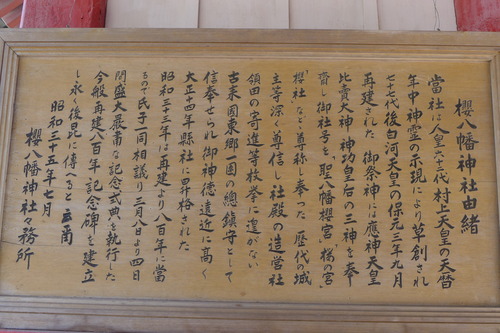 櫻八幡神社由緒
當社は人皇六十二代村上天皇の天暦
年中神霊の示現により草創され
七十七代後白河天皇の保元三年九月
再建された 御祭神には應神天皇
比賣大神 神功皇后の三神を奉
齋し御社号を「聖八幡櫻宮」「桜の宮」
「櫻社」などと尊称し奉った 歴代の城
主等深く尊信し社殿の造営社
領田の寄進等枚挙に遑がない
古来國東郷一円の総鎮守として
信奉せられ御神徳遠近に高く
大正十四年縣社に昇格された
昭和三十三年は再建より八百年に當
るので氏子一同相議り三月八日より四日
間盛大厳粛な記念式典を執行した
今般再建八百年記念碑を建立
し永く後昆に傳へると云爾
昭和三十五年七月
櫻八幡神社々務所